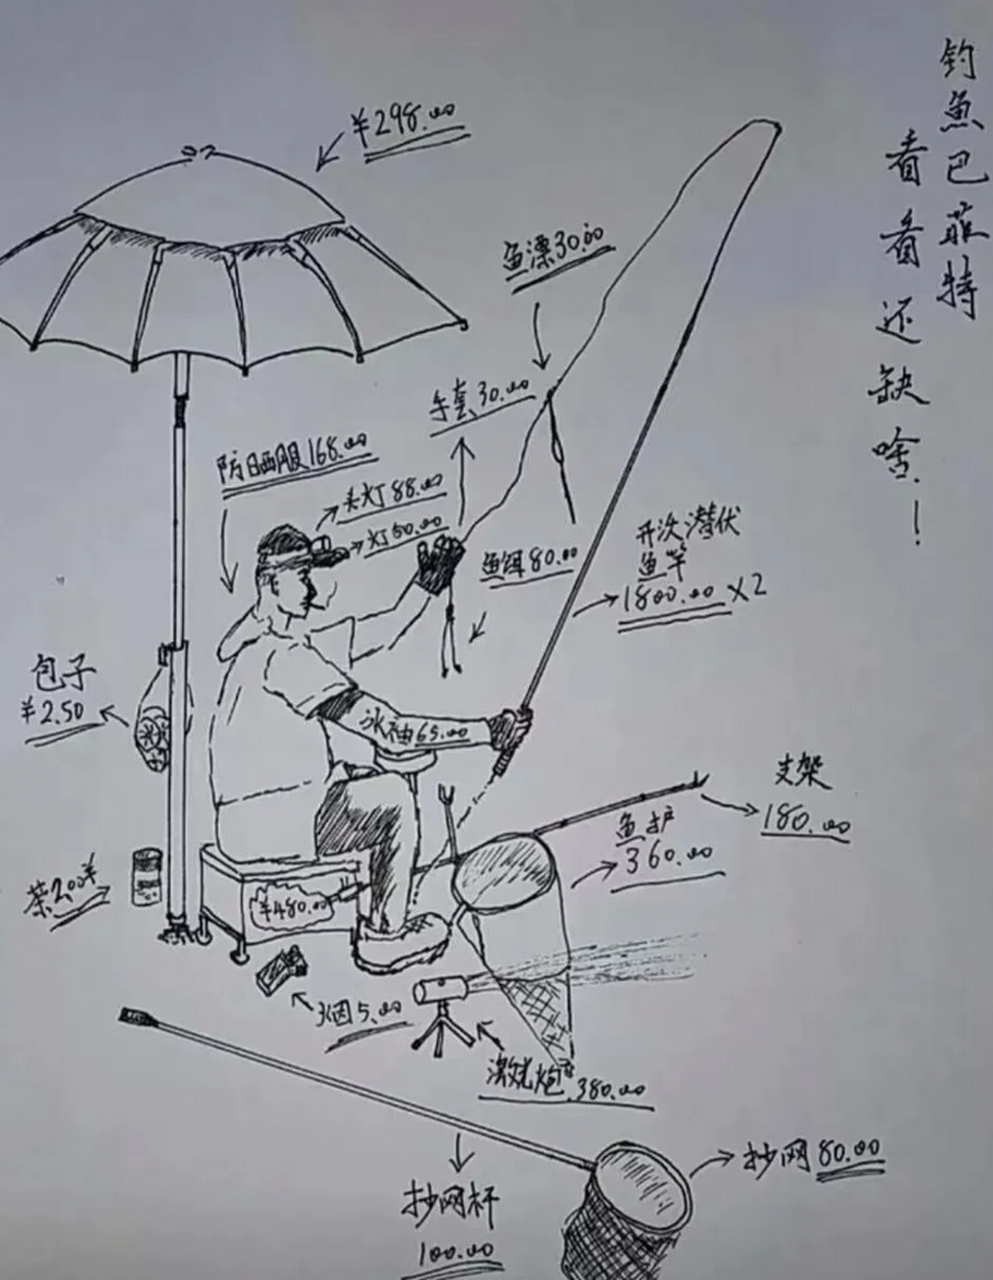 钓魚巴菲特
看看还缺啥！
¥298.00
鱼漂30.00
手套30.00
防日晒服168.00
头灯88.00
灯60.00
鱼饵80.00
开次潜伏
鱼竿
1800.00 X2
包子
¥2.50
冰袖65.00
支架
180.00
鱼护
360.00
茶2.00¥
¥480.00
烟5.00
激炮380.00
抄网80.00
抄网杆
100.00